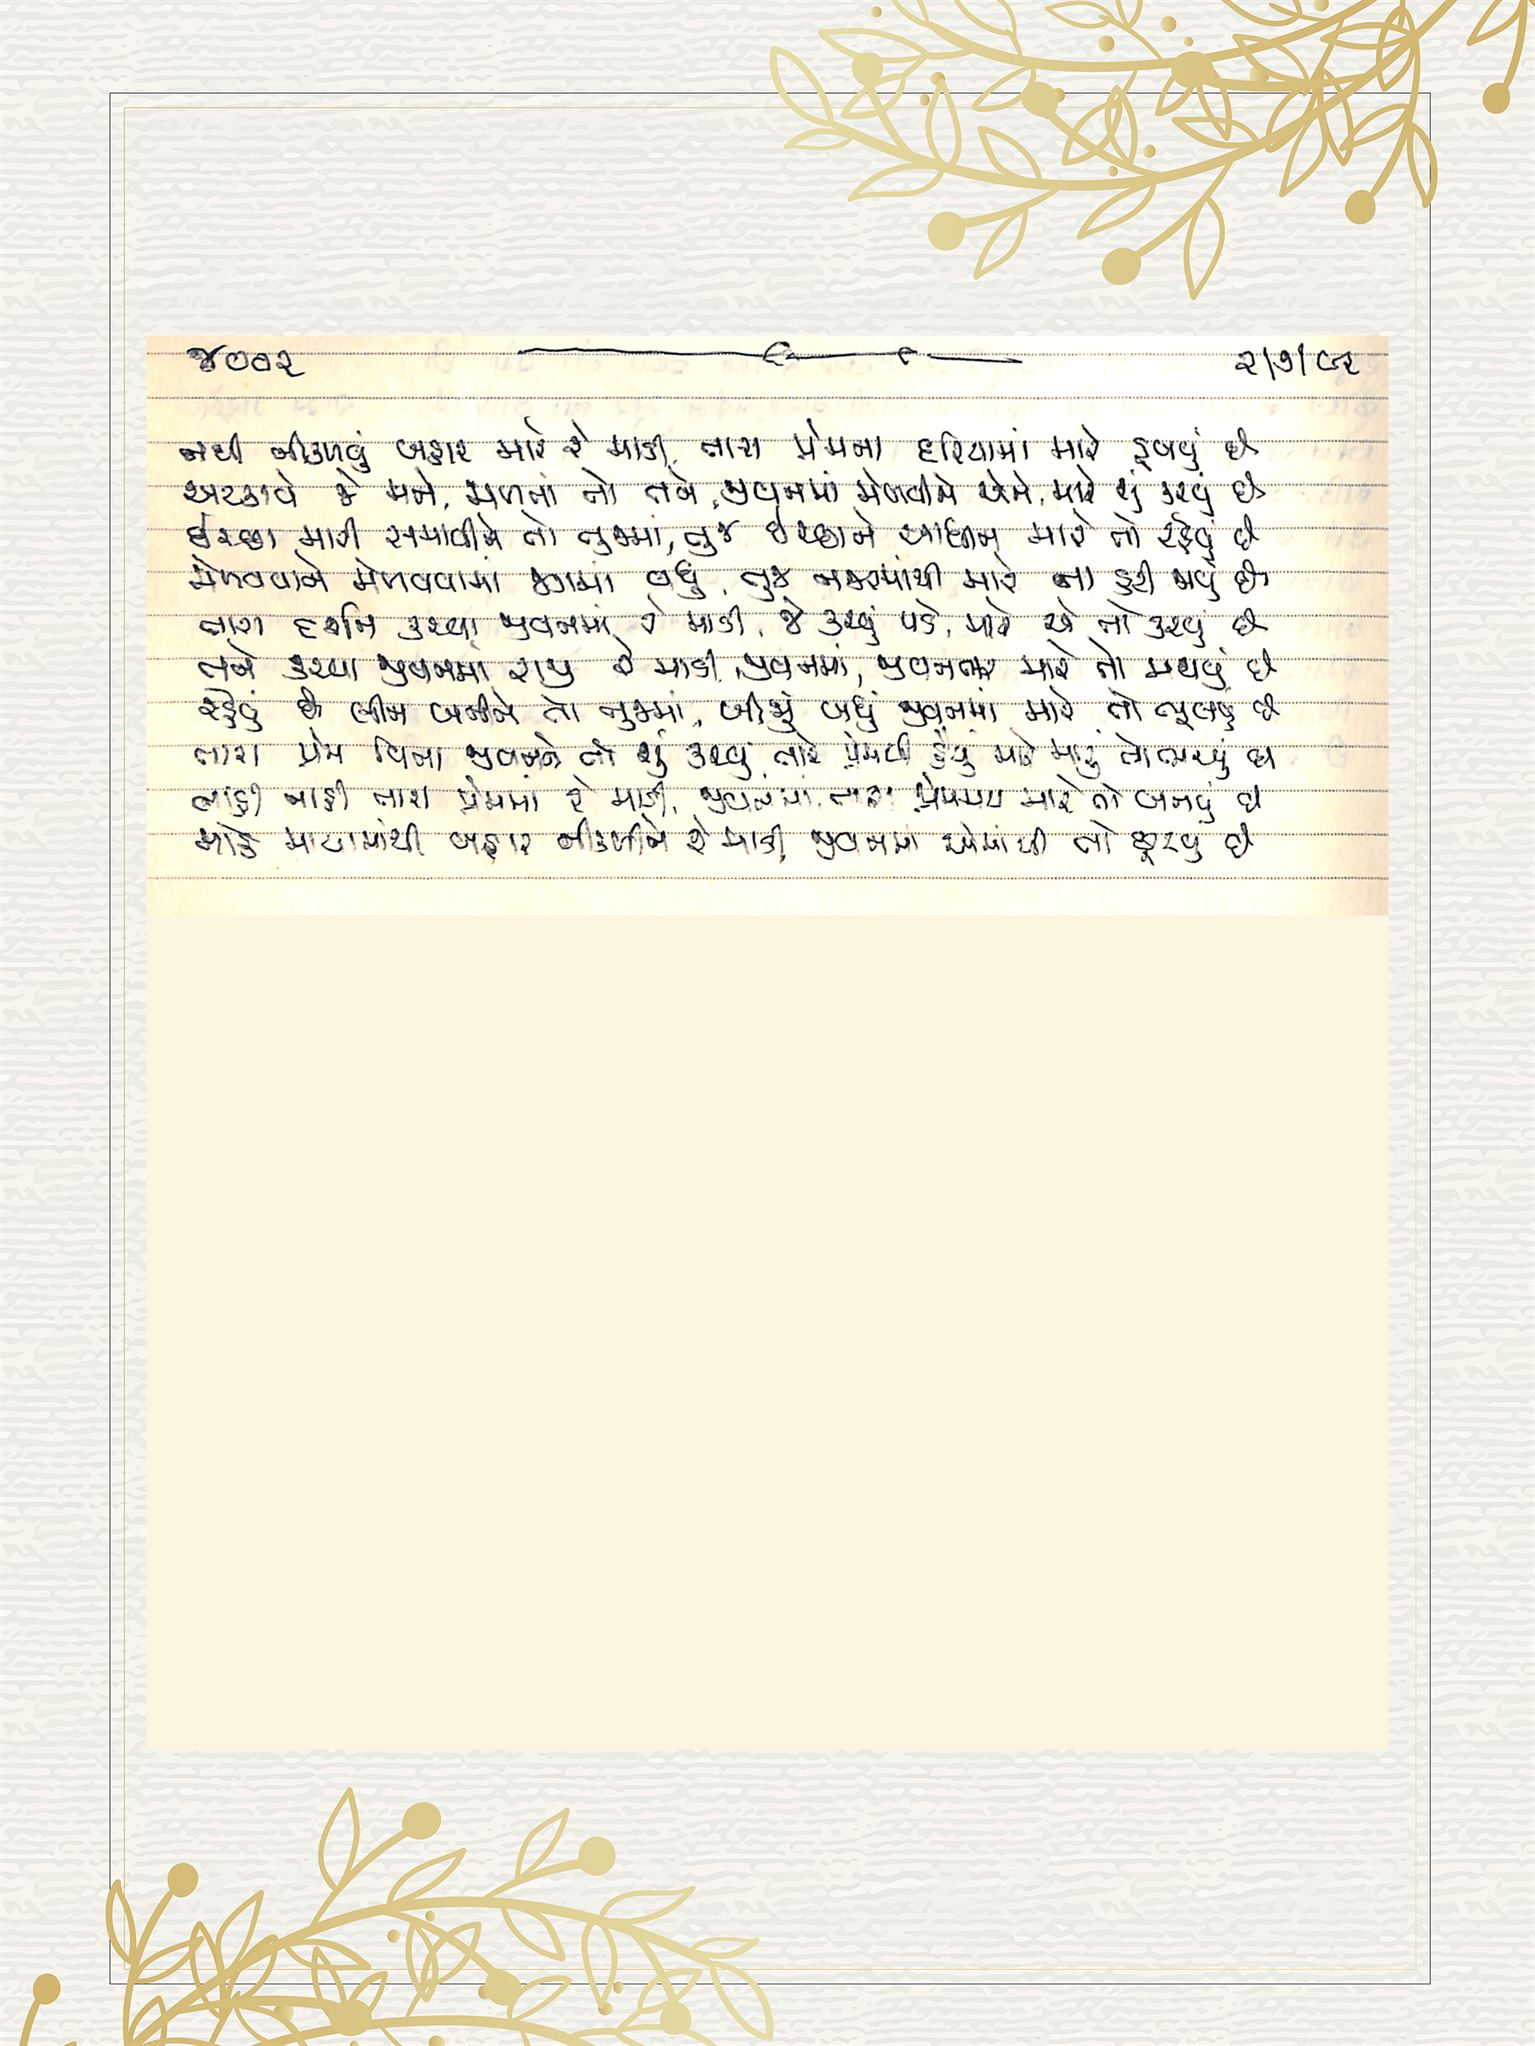 ૪૦૦૨ ૨/૭/૯૨
નથી નીકળવું બહાર મારે રે માડી, તારા પ્રેમના દરિયામાં મારે ડૂબવું છે
અટકાવે જે મને, મળતાં તો તને, જીવનમાં મેળવીને એને, મારે શું કરવું છે
ઇચ્છા મારી સમાવીને તો તુજમાં, તુજ ઇચ્છાને આધીન મારે તો રહેવું છે
મેળવવાને મેળવવામાં જગમાં બધું, તુજ નજરમાંથી મારે ના હટી જાવું છે
તારા દર્શન કરવા જીવનમાં રે માડી, જે કરવું પડે, મારે એ તો કરવું છે
તને કરવા જીવનમાં રાજી રે માડી, જીવનમાં, જીવનભર મારે તો મથવું છે
રહેવું છે લીન બનીને તો તુજમાં, બીજું બધું જીવનમાં મારે તો ભૂલવું છે
તારા પ્રેમ વિના જીવનને તો શું કરવું, તારે પ્રેમથી હૈયું મારે મારું તો ભરવું છે
નાહી નાહી તારા પ્રેમમાં રે માડી, જીવનમાં તારા પ્રેમમય મારે તો બનવું છે
માયામાંથી બહાર નીકળીને રે માડી, જીવનમાં એમાંથી તો છૂટવું છે